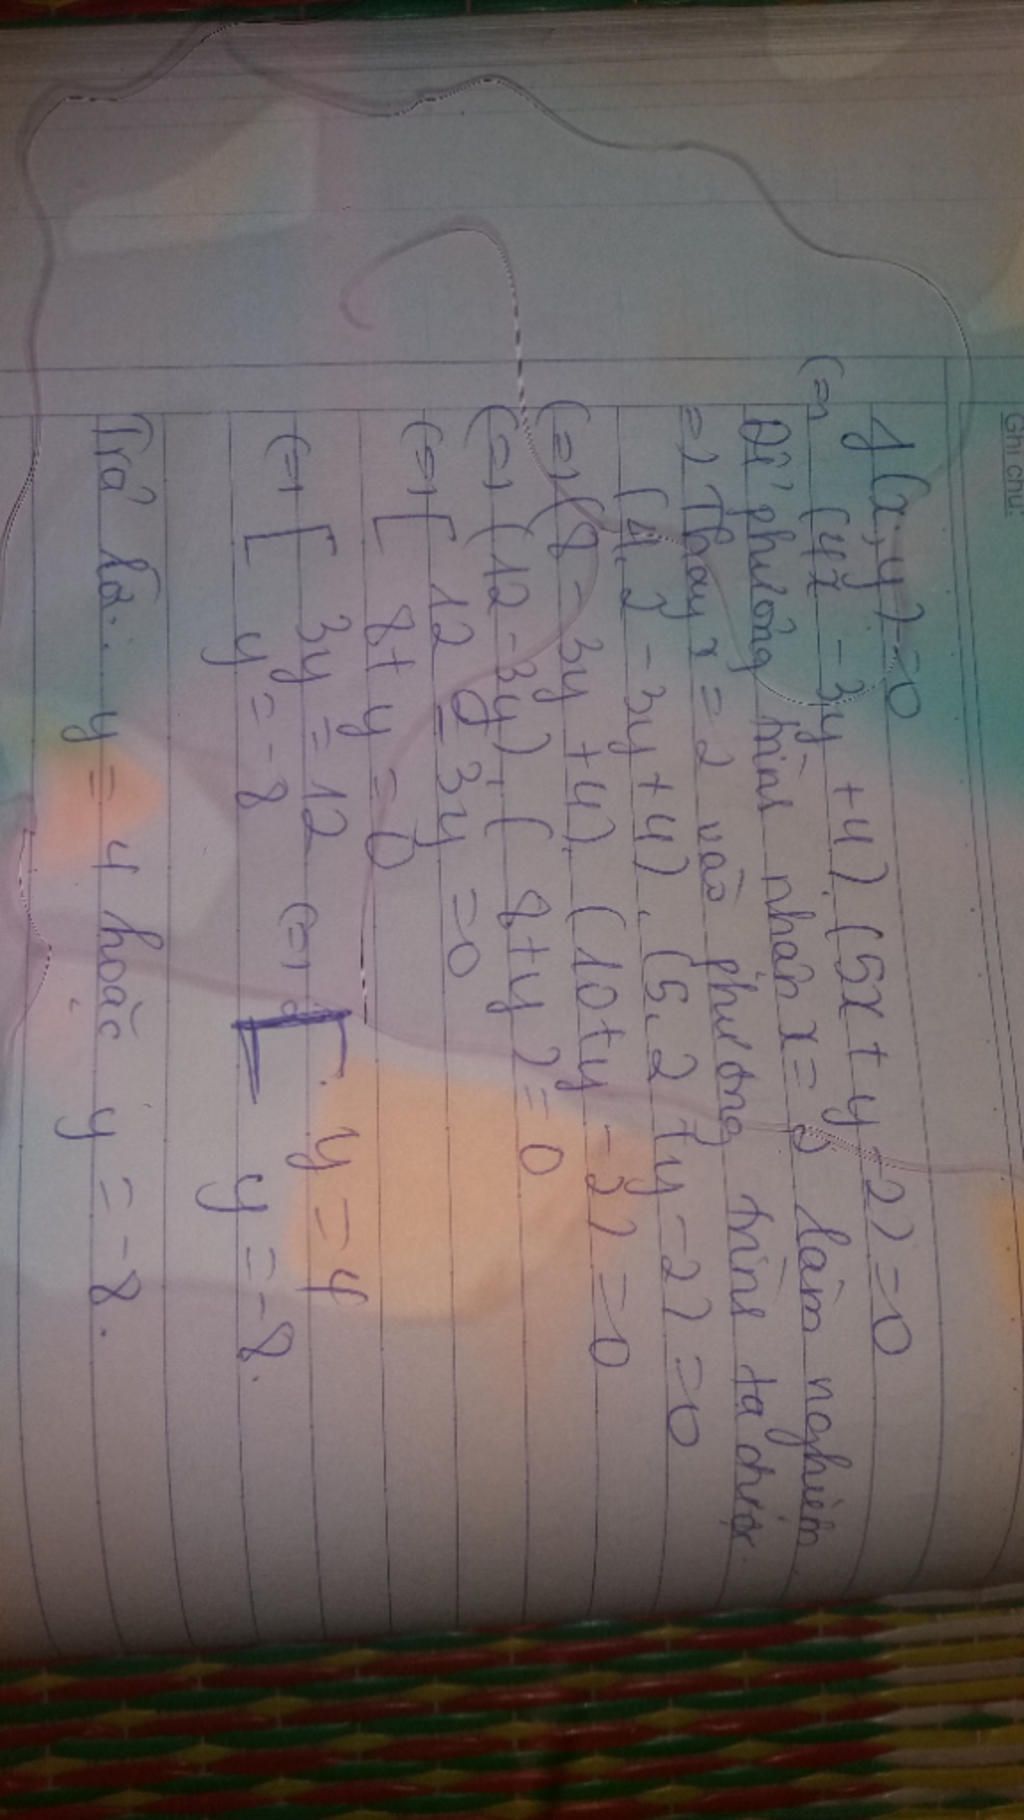 Ghi chú:
f(x, y) = 0
(=) (4x - 3y + 4). (5x + y - 2) = 0
Để phương trình nhận x = 2 làm nghiệm
=) Thay x = 2 vào phương trình ta được.
(4.2 - 3y + 4). (5.2 + y - 2) = 0
(=) (8 - 3y + 4). (10 + y - 2) = 0
(=) (12 - 3y). (8 + y) = 0
(=) [ 12 - 3y = 0
8 + y = 0
(=) [ 3y = 12 (=) [ y = 4
y = -8 y = -8.
Trả lời: y = 4 hoặc y = -8.